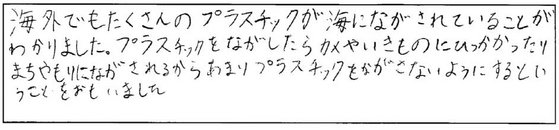 海外でもたくさんのプラスチックが海にながされていることが
わかりました。プラスチックをながしたらカメやいきものにひっかかったり
まちやもりにながされるからあまりプラスチックをながさないようにするとい
うことをおもいました